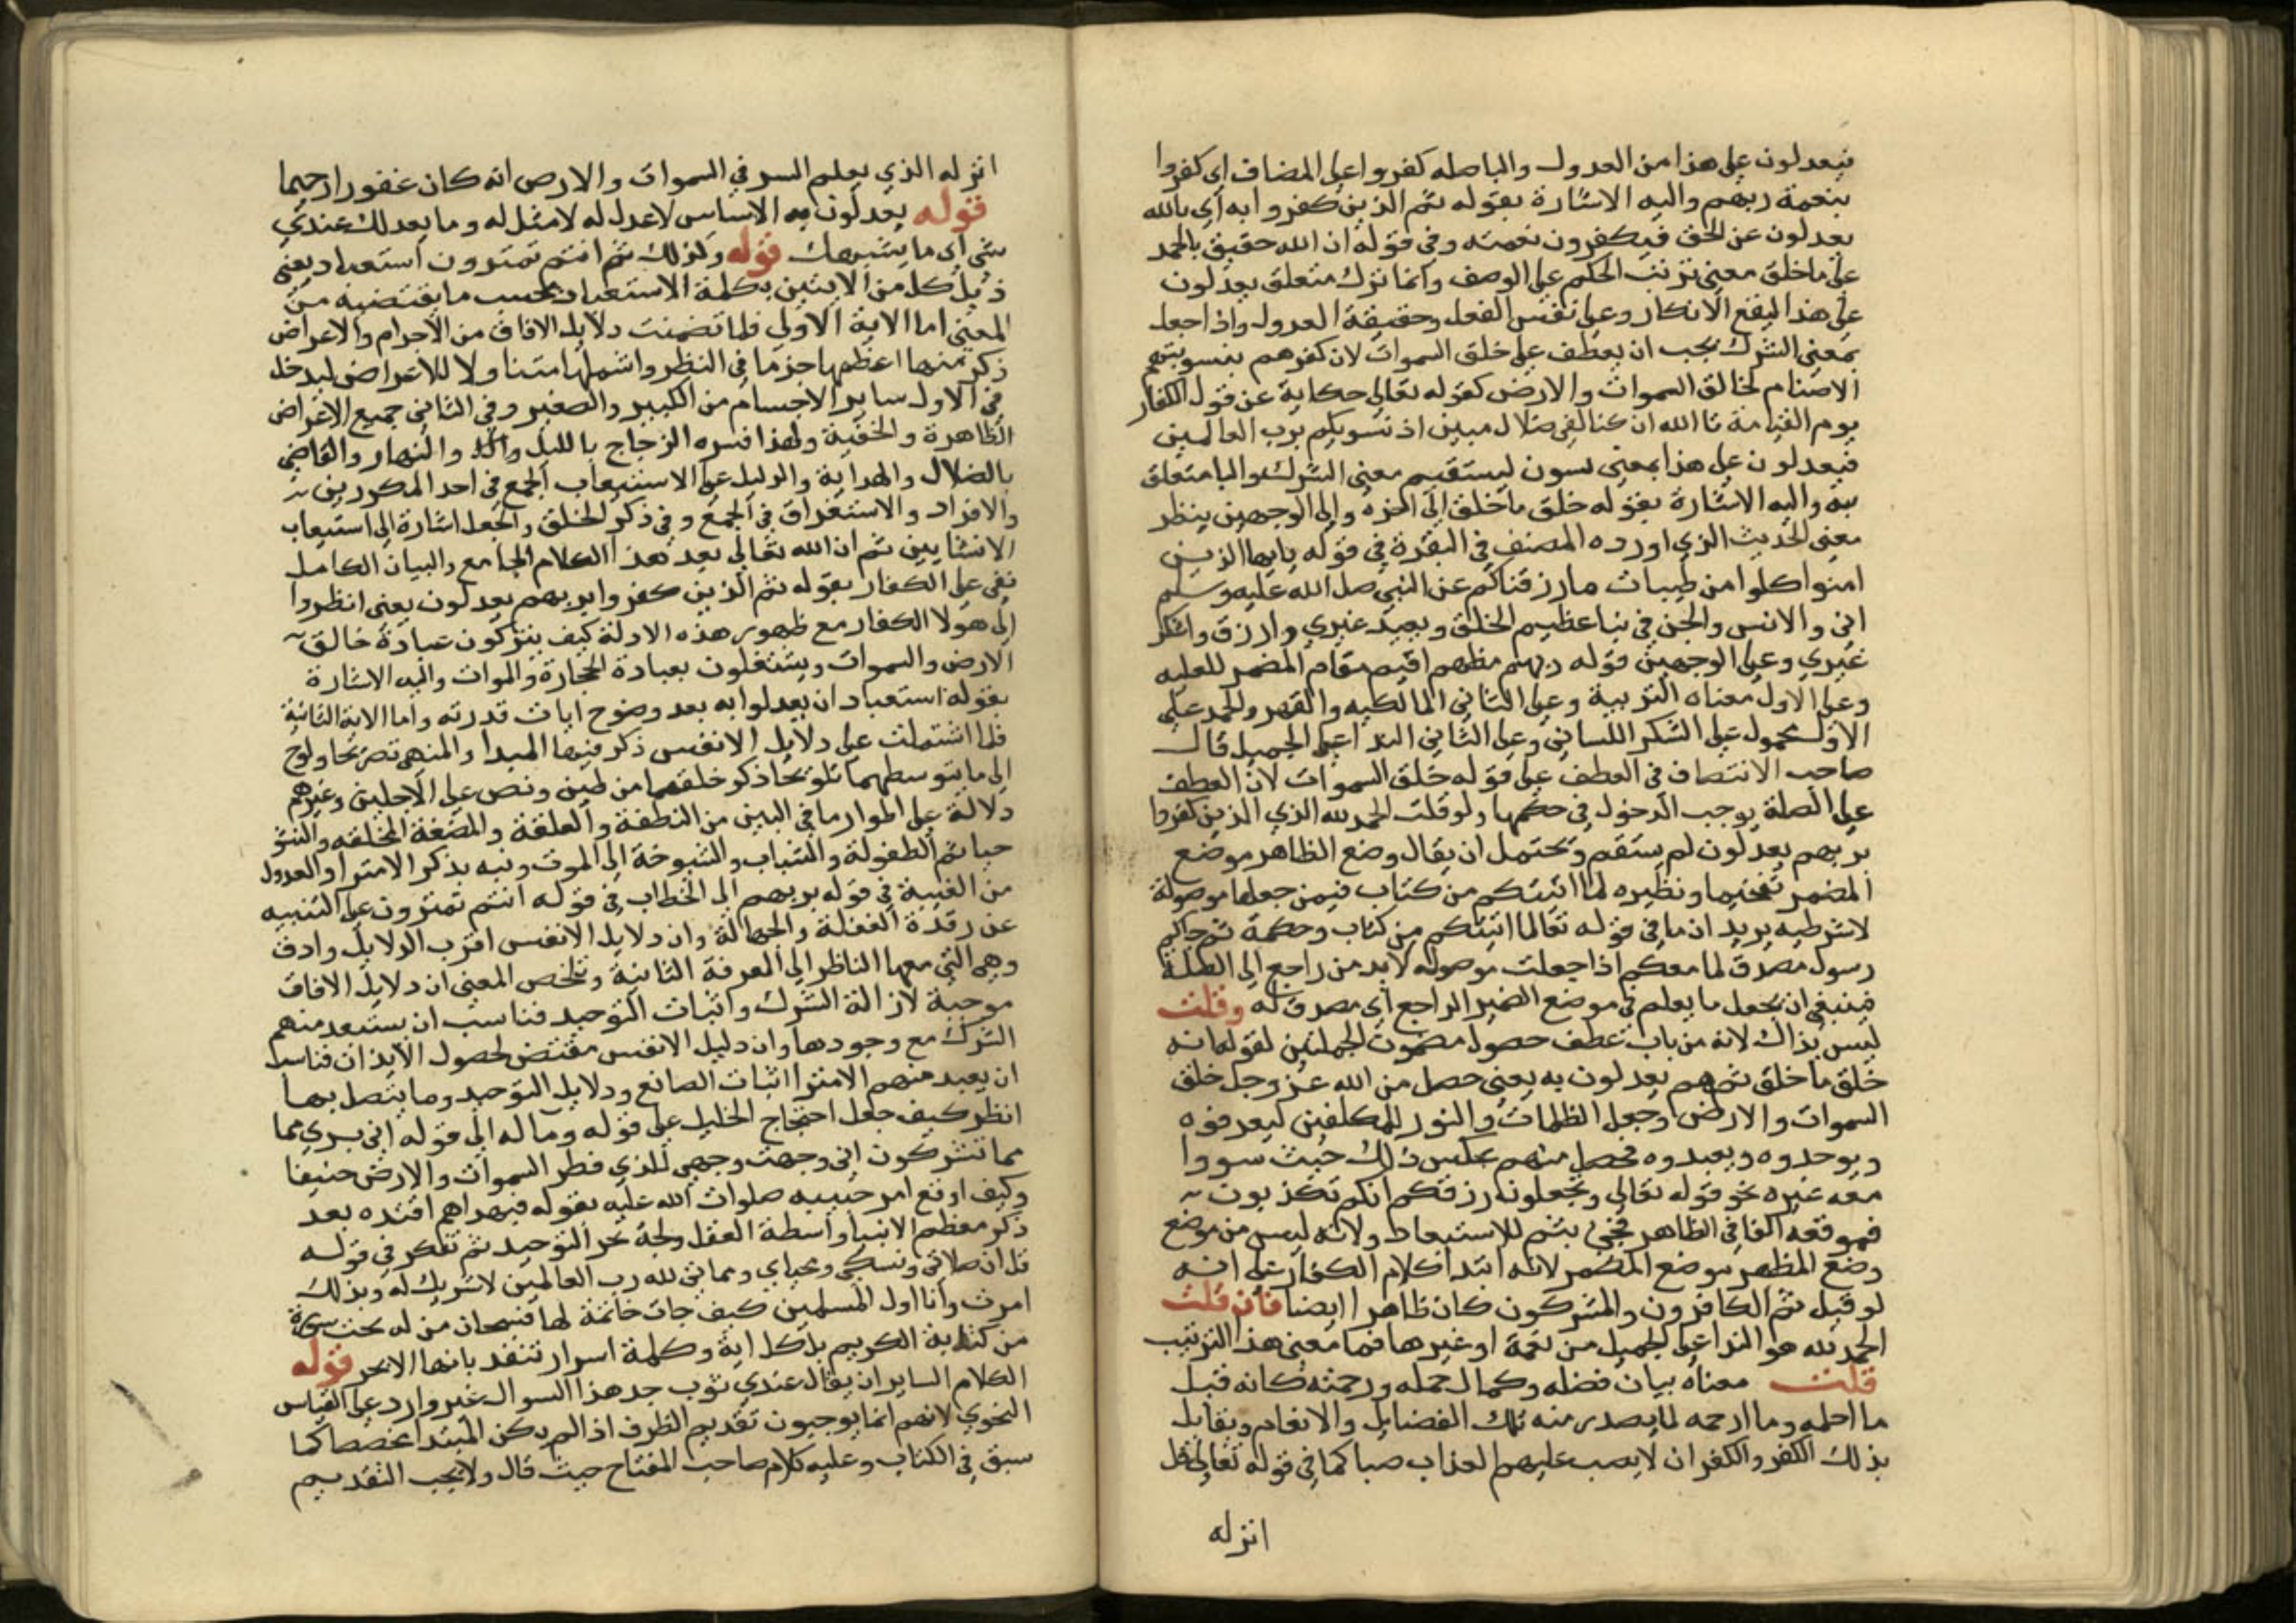 فيعدلون على هذا من العدول والبا صله كفروا على المضاف اى كفروا
بنعمة ربهم واليه الاشارة بقوله ثم الذين كفروا به اى بالله
يعدلون عن الحق فيكفرون نعمته وفى قوله ان الله حقيق بالحمد
على ما خلق معنى ترتب الحكم على الوصف وانما ترك متعلق يعدلون
على هذا ليقع الانكار وعلى نفس الفعل وحقيقة العدول واذا جعل
بمعنى الشرك يجب ان يعطف على خلق السموات لان كفرهم بتسويتهم
الاصنام لخالق السموات والارض كقوله تعالى حكاية عن قول الكفار
يوم القيامة تا الله ان كنا لفى ضلال مبين اذ نسويكم برب العالمين
فيعدلون على هذا بمعنى يسون ليستقيم معنى الشرك والبا متعلق
به واليه الاشارة بقوله خلق ما خلق الى اخره والى الوجهين ينظر
معنى الحديث الذي اورده المصنف في البقرة في قوله يايها الذين
امنوا كلوا من طيبات ما رزقناكم عن النبي صلى الله عليه وسلم
انى والانس والجن في نبا عظيم اخلق ويعبد غيري وارزق واشكر
غيري وعلى الوجهين قوله بربهم مظهر اقيم مقام المضمر للعليه
وعلى الاول معناه التربية وعلى الثاني المالكيه والقهر والحمد على
الاول محمول على الشكر اللساني وعلى الثاني الثنا على الجميل قال
صاحب الانتصاف في العطف على قوله خلق السموات لان العطف
على الصلة يوجب الدخول في حكمها ولو قلت الحمد لله الذي الذين كفروا
بربهم يعدلون لم يستقم ويحتمل ان يقال وضع الظاهر موضع
المضمر تفخيما ونظيره لما اتيتكم من كتاب فيمن جعلها موصولة
لا شرطيه يريد ان ما في قوله تعالى لما اتيتكم من كتاب وحكمة ثم جاكم
رسول مصدق لما معكم اذا جعلت موصوله لابد من راجع الى الصلة
فينبغي ان يجعل ما يعلم في موضع الضمير الراجع اى مصدق له وقلت
ليس بذاك لانه من باب عطف حصول مضمون الجملتين لقوله انه
خلق ما خلق ثم هم يعدلون به يعني حصل من الله عز وجل خلق
السموات والارض وجعل الظلمات والنور للمكلفين ليعرفوه
ويوحدوه ويعبدوه فحصل منهم عكس ذلك حيث سووا
معه غيره نحو قوله تعالى وتجعلون رزقكم انكم تكذبون
فموقعه الفا في الظاهر فجئ بثم للاستبعاد ولانه ليس من موضع
وضع المظهر موضع المضمر لانه ابتدا كلام الكفار على انه
لو قيل ثم الكافرون والمشركون كان ظاهرا ايضا فان قلت
الحمد لله هو الثنا على الجميل من نعمة او غيرها فما معنى هذا الترتيب
قلت معناه بيان فضله وكمال حمله ورحمته كانه قيل
ما احلمه وما ارحمه لما يصدر منه تلك الفضايل والانعام ويقابل
بذلك الكفر والكفران لا يصب عليهم العذاب صبا كما في قوله تعالى قل
انزله
انزله الذي يعلم السر في السموات والارض انه كان غفورا رحيما
قوله يعدلون به الاساس لا عدل له لا مثل له وما يعدلك عندي
شي اى ما يشبهك قوله وكذلك ثم انتم تمترون استبعاد يعني
ذيل كل من الايتين بكلمة الاستبعاد بحسب ما يقتضيه من
المعنى اما الاية الاولى فلما تضمنت دلايل الافاق من الاجرام والاعراض
ذكر منها اعظمها جزما في النظر واشملها متناولا للاعراض ليدخل
في الاول ساير الاجسام من الكبير والصغير وفي الثاني جميع الاعراض
الظاهرة والخفية ولهذا فسره الزجاج بالليل والنهار والقاضي
بالضلال والهداية والدليل على الاستيعاب الجمع في احد المذكورين
والافراد والاستغراق في الجمع وفي ذكر الخلق والجعل اشارة الى استيعاب
الانشايين ثم ان الله تعالى بعد هذا الكلام الجامع والبيان الكامل
نعى على الكفار بقوله ثم الذين كفروا بربهم يعدلون يعني انظروا
الى هولا الكفار مع ظهور هذه الادلة كيف يتركون عبادة خالق
الارض والسموات ويشتغلون بعبادة الحجارة والموات واليه الاشارة
بقوله استبعاد ان يعدلوا به بعد وضوح ايات قدرته واما الاية الثانية
فلما اشتملت على دلايل الانفس ذكر فيها المبدا والمنهى تصريحا ولوح
الى ما يتوسطهما تلويحا ذكر خلقهما من طين ونص على الاجلين وغيرهم
دلالة على اطوار ما في البين من النطفة والعلقة والمضغة المخلقه والنشو
حيا ثم الطفولة والشباب والشيوخة الى الموت ونبه بذكر الامترا والعدول
من الغيبة في قوله بربهم الى الخطاب في قوله انتم تمترون على التنبيه
عن رقدة الغفلة والجهالة وان دلايل الانفس اقرب الدلايل وادق
وهي التي معها الناظر الى المعرفة الثانية وتلخص المعنى ان دلايل الافاق
موجبة لازالة الشرك واثبات التوحيد فناسب ان يستبعد منهم
الشرك مع وجودها وان دليل الانفس مقتض لحصول الايذان فناسب
ان يبعد منهم الامترا اثبات الصانع ودلايل التوحيد وما يتصل بها
انظر كيف جعل احتجاج الخليل على قوله وما له الى قوله انى بري مما
مما تشركون اني وجهت وجهي للذي فطر السموات والارض حنيفا
وكيف اوقع امر حبيبه صلوات الله عليه بقوله فبهداهم اقتده بعد
ذكر معظم الانبيا واسطة العقل ولجة بحر التوحيد ثم تفكر في قوله
قل ان صلاتي ونسكي ومحياي ومماتي لله رب العالمين لا شريك له وبذلك
امرت وانا اول المسلمين كيف جات خاتمة لها فسبحان من له تحت سورة
من كتابه الكريم بل كل اية وكلمة اسرار تنفد بانها الابحر قوله
الكلام الساير ان يقال عندي ثوب جد هذا السوال غير وارد على القياس
النحوي لانهم انما يوجبون تقديم الظرف اذا لم يكن المبتدا مخصصا كما
سبق في الكتاب وعليه كلام صاحب المفتاح حيث قال ولا يجب التقديم